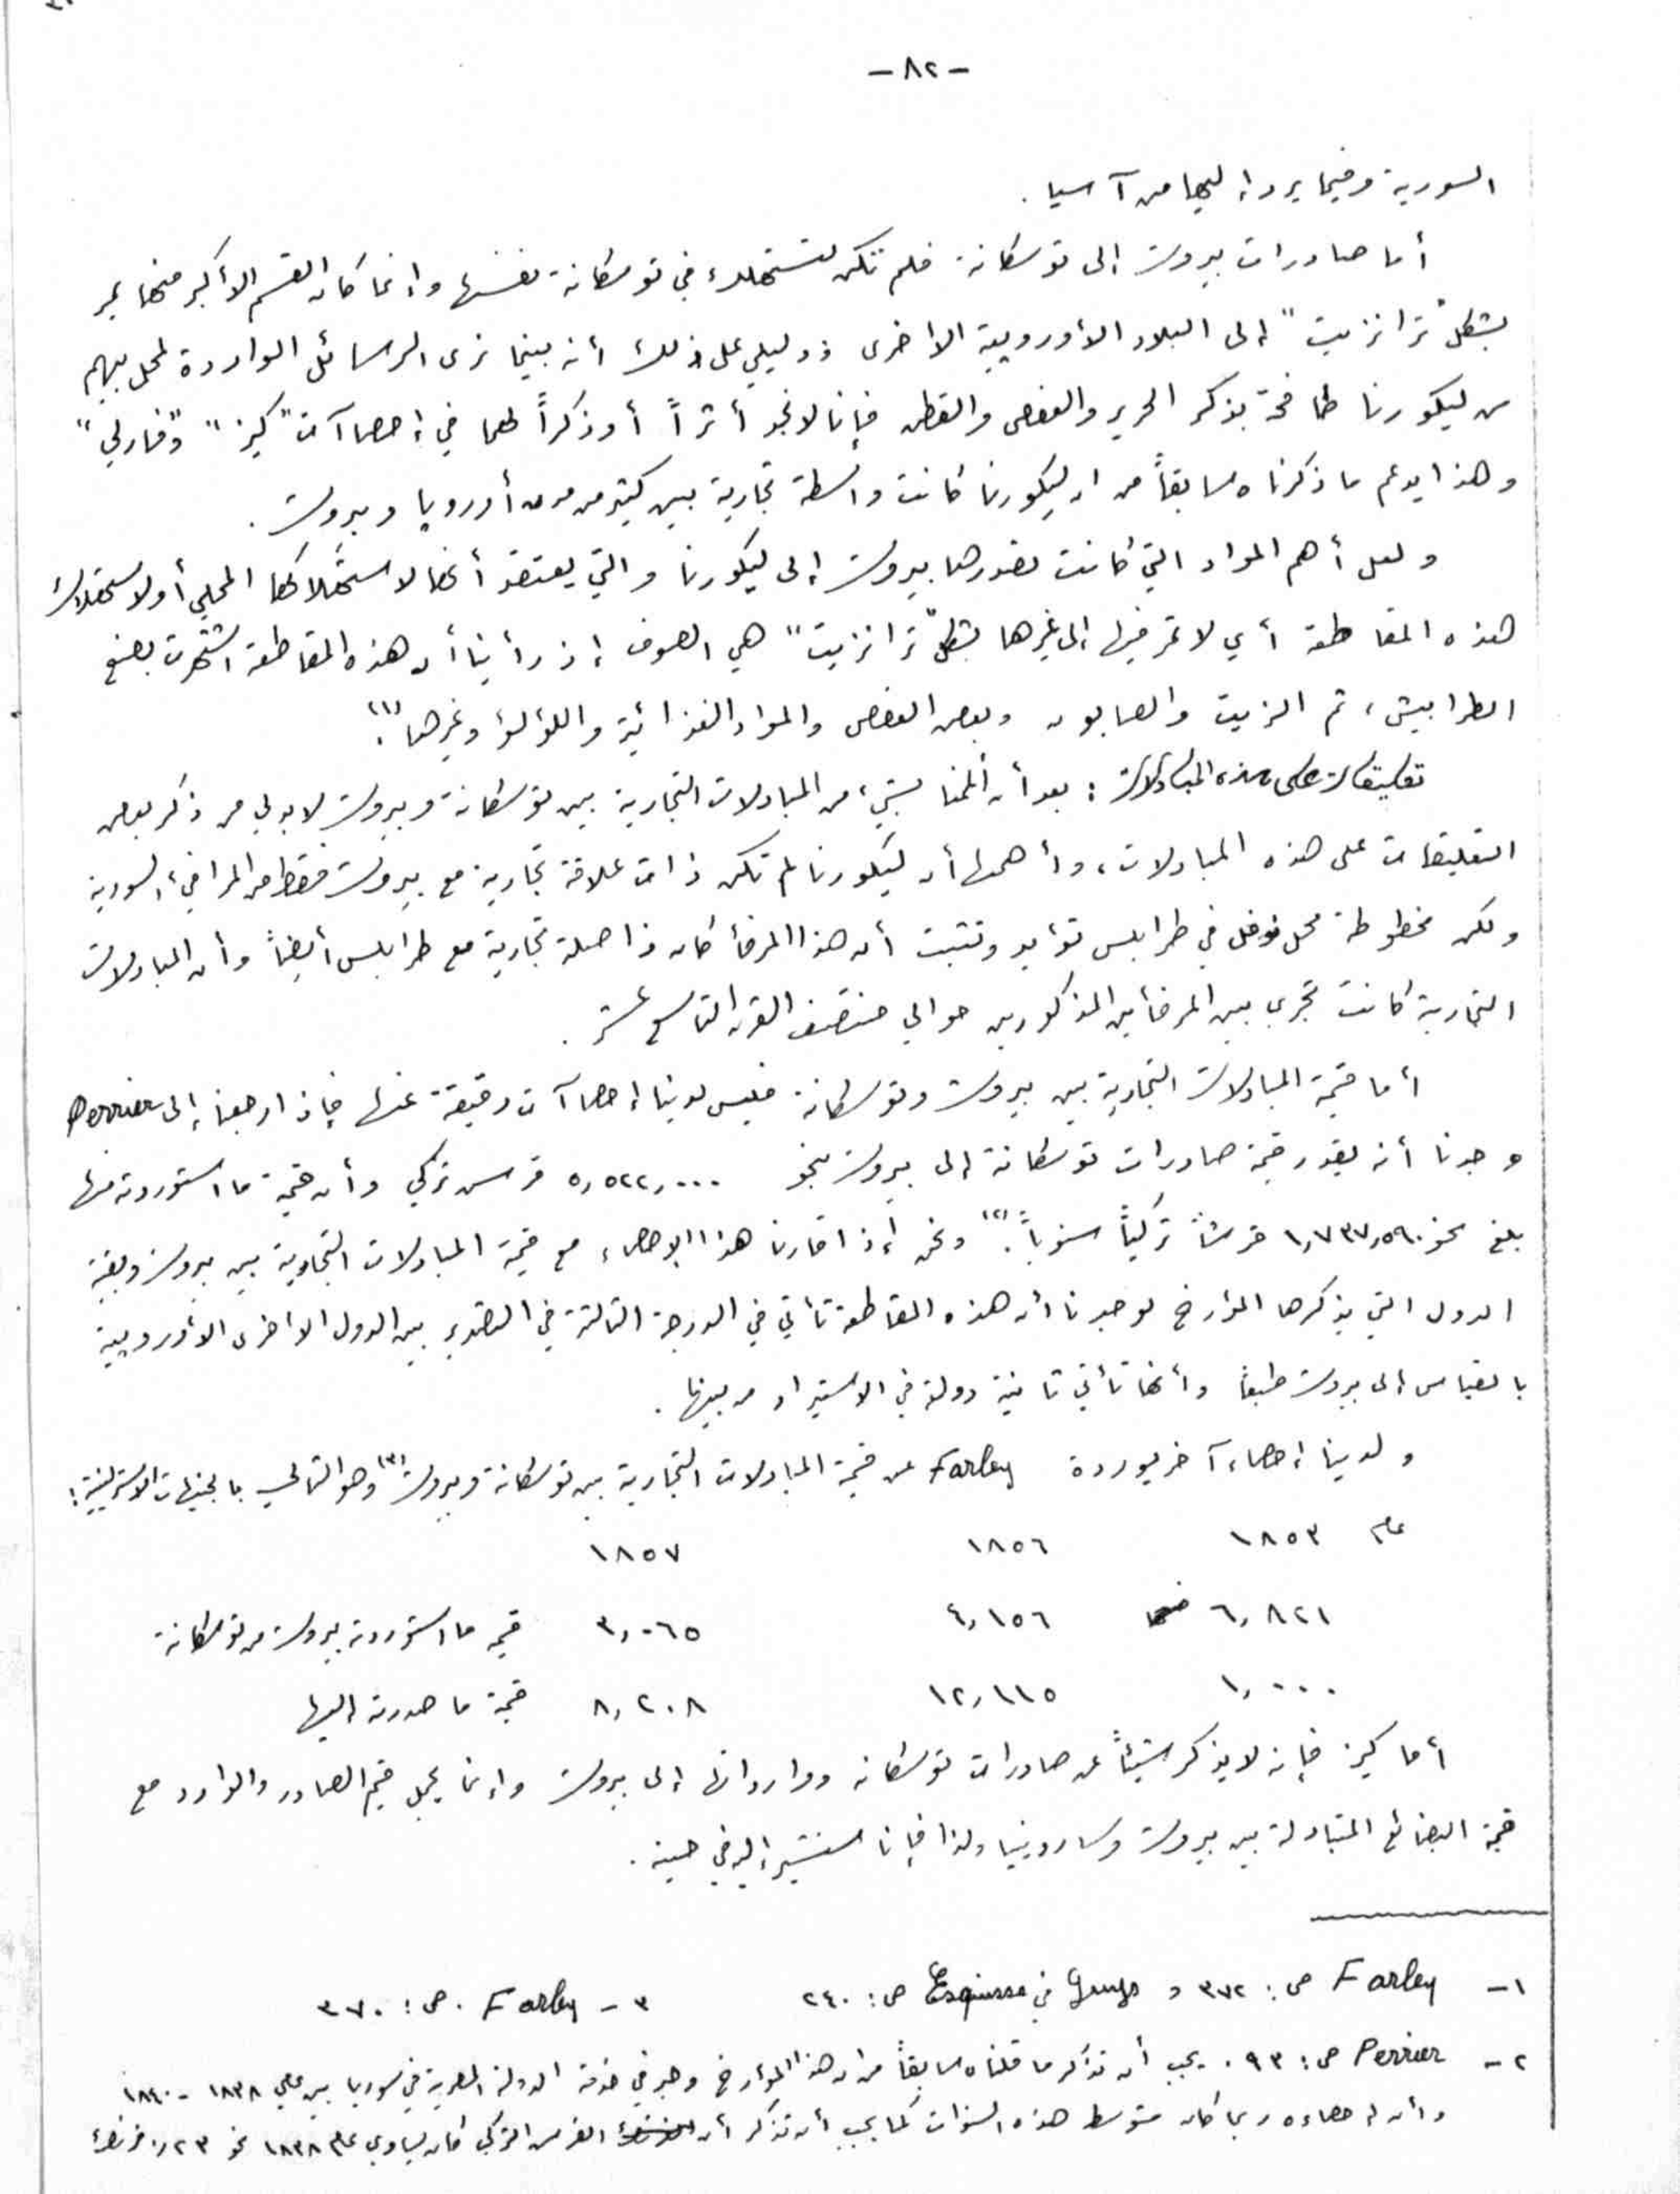 -٨٢-
السورية وفيما يرد إليها من آسيا .
أما صادرات بيروت إلى توسكانة فلم تكن تستهلك في توسكانة نفسها وإنما كان القسم الأكبر منها يمر
بشكل "ترانزيت" إلى البلاد الأوروبية الاخرى ودليلي على ذلك أنه بينما نرى الرسائل الواردة لمحل بيهم
من ليكورنا طافحة بذكر الحرير والعفص والقطن فإنا لا نجد أثراً أو ذكراً لهما في إحصاآت "كيز" و"فارلي"
وهذا يدعم ما ذكرناه سابقاً من ان ليكورنا كانت واسطة تجارية بين كثير من مدن أوروبا وبيروت .
ولعل أهم المواد التي كانت تصدرها بيروت إلى ليكورنا والتي يعتقد أنها لاستهلاكها المحلي أو لاستهلاك
هذه المقاطعة أي لا تمر فيها إلى غيرها بشكل "ترانزيت" هي الصوف إذ رأينا أن هذه المقاطعة اشتهرت بصنع
الطرابيش ، ثم الزيت والصابون وبعض العفص والمواد الغذائية واللؤلؤ وغيرها (١).
تعليقات على هذه المبادلات : بعد أن ألممنا بشيء من المبادلات التجارية بين توسكانة وبيروت لا بد لي من ذكر بعض
التعليقات على هذه المبادلات ، وأهمها أن ليكورنا لم تكن ذات علاقة تجارية مع بيروت فقط من المرافئ السورية
ولكن مخطوطة محل نوفل في طرابلس تؤيد وتثبت أن هذا المرفأ كان ذا صلة تجارية مع طرابلس أيضاً وأن المبادلات
التجارية كانت تجري بين المرفأين المذكورين حوالي منتصف القرن التاسع عشر .
أما قيمة المبادلات التجارية بين بيروت وتوسكانة فليس لدينا إحصاآت دقيقة عنها فإذا رجعنا إلى Perrier
وجدنا أنه يقدر قيمة صادرات توسكانة إلى بيروت بنحو ٥,٥٢٢,٠٠٠ قرش تركي وأن قيمة ما استوردته منها
بلغ نحو ١,٧٣٧,٥٩٠ قرشاً تركياً سنوياً (٢). ونحن إذا قارنا هذا الإحصاء مع قيمة المبادلات التجارية بين بيروت وبقية
الدول التي يذكرها المؤرخ لوجدنا أن هذه المقاطعة تأتي في الدرجة الثالثة في التصدير بين الدول الاخرى الأوروبية
بالقياس إلى بيروت طبعاً وأنها تأتي ثانية دولة في الاستيراد من بينها .
ولدينا إحصاء آخر يورده Farley عن قيمة المبادلات التجارية بين توسكانة وبيروت (٣) وهو التالي بالجنيهات الاسترلينية :
عام ١٨٥٣ ١٨٥٦ ١٨٥٧
٦,٨٢١ ٤,١٥٦ ٣,٠٦٥ قيمة ما استوردته بيروت من توسكانة
١,٠٠٠ ١٢,١١٥ ٨,٢٠٨ قيمة ما صدرته إليها
أما كيز فإنه لا يذكر شيئاً عن صادرات توسكانه ووارداتها إلى بيروت وإنما يجمل قيم الصادر والوارد مع
قيمة البضائع المتبادلة بين بيروت وساردينيا ولذا فإنا سنشير إليه في حينه .
١- Farley ص : ٣٧٢ و Guys في Esquisse ص : ٢٤٠ ٣- Farley . ص : ٣٧٠
٢- Perrier ص : ٩٣ . يجب أن نذكر ما قلناه سابقاً من ان هذا المؤرخ وجد في خدمة الدولة المصرية في سوريا بين عامي ١٨٣٨ - ١٨٤٠
وأن إحصاءه ربما كان متوسط هذه السنوات كما يجب أن نذكر أن القرش التركي كان يساوي عام ١٨٣٨ نحو ٢٣ر٠